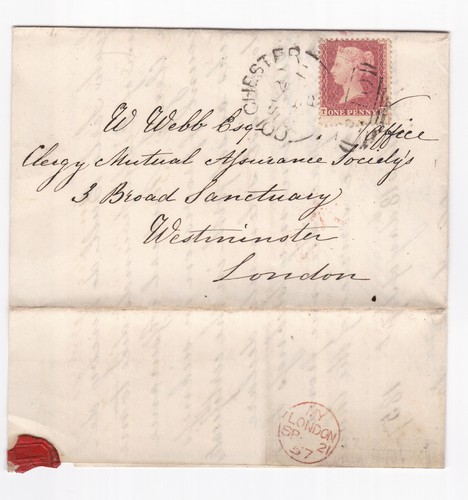 COLCHESTER
ONE PENNY
W Webb Esq
Office
Clergy Mutual Assurance Society's
3 Broad Sanctuary
Westminster
London
MY
LONDON
SP 21
57